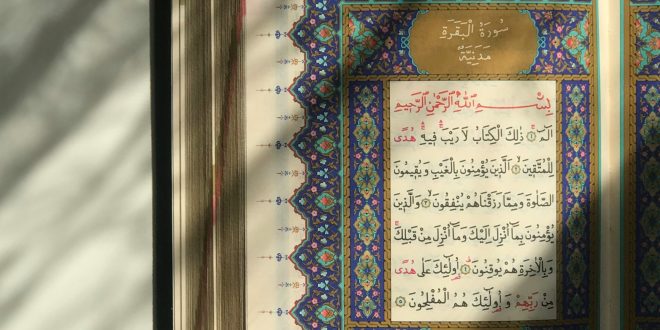 سُورَةُ الْبَقَرَةِ
مَدَنِيَّةٌ
بِسْمِ اللّٰهِ الرَّحْمٰنِ الرَّحِيمِ
الٓمٓ ۝١ ذٰلِكَ الْكِتَابُ لَا رَيْبَ ۛ فِيهِ ۛ هُدًى
لِلْمُتَّقِينَ ۝٢ الَّذِينَ يُؤْمِنُونَ بِالْغَيْبِ وَيُقِيمُونَ
الصَّلٰوةَ وَمِمَّا رَزَقْنَاهُمْ يُنْفِقُونَ ۝٣ وَالَّذِينَ
يُؤْمِنُونَ بِمَا أُنْزِلَ إِلَيْكَ وَمَا أُنْزِلَ مِنْ قَبْلِكَ
وَبِالْاٰخِرَةِ هُمْ يُوقِنُونَ ۝٤ أُولٰئِكَ عَلٰى هُدًى
مِنْ رَبِّهِمْ وَأُولٰئِكَ هُمُ الْمُفْلِحُونَ ۝٥